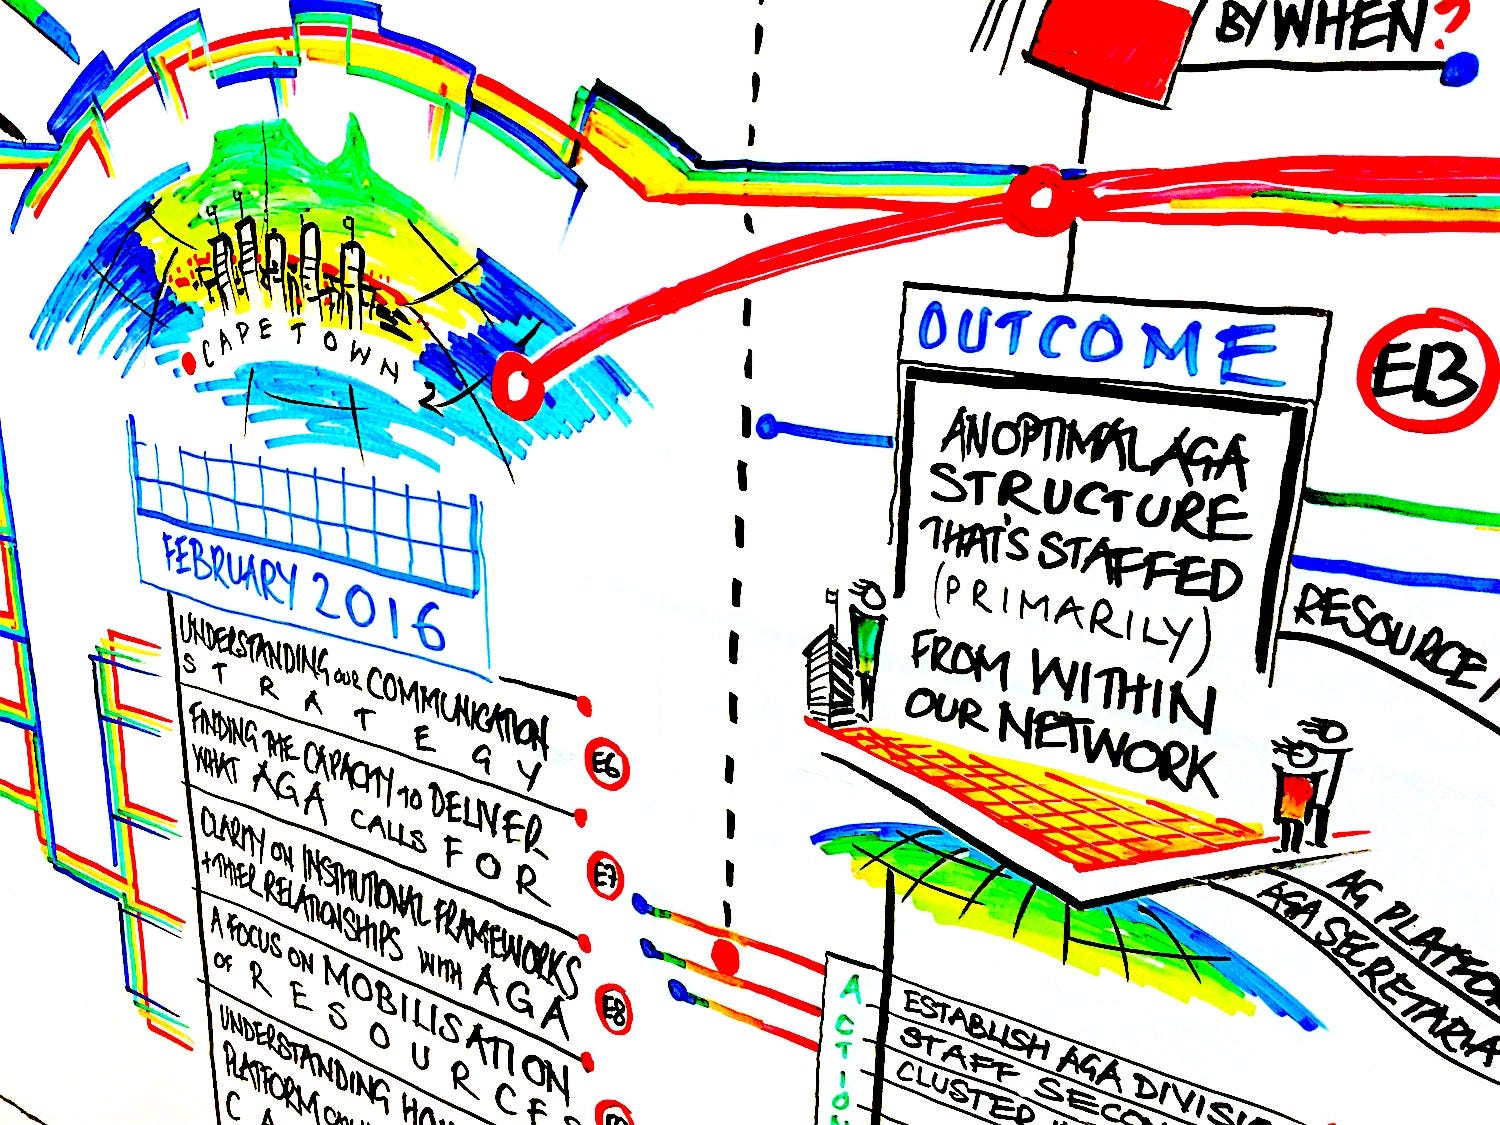 BY WHEN?
CAPE TOWN 2
FEBRUARY 2016
UNDERSTANDING OUR COMMUNICATION
STRATEGY
E6
FINDING THE CAPACITY TO DELIVER
WHAT AGA CALLS FOR
E7
CLARITY ON INSTITUTIONAL FRAMEWORKS
+ THEIR RELATIONSHIPS WITH AGA
E8
A FOCUS ON MOBILISATION
OF RESOURCES
UNDERSTANDING
PLATFORM
OUTCOME
E13
AN OPTIMAL AGA
STRUCTURE
THAT'S STAFFED
(PRIMARILY)
FROM WITHIN
OUR NETWORK
RESOURCE
AG PLATFO
AGA SECRETARIA
ACTION
ESTABLISH AGA DIVISIO
STAFF SECON
CLUSTED